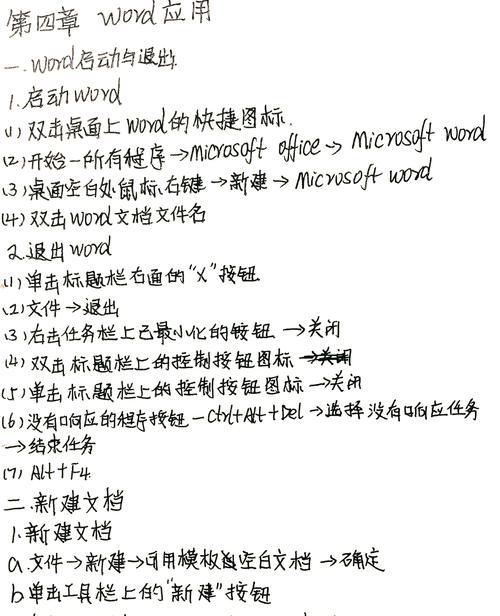 第四章 Word应用
一.Word启动与退出
1.启动Word
(1)双击桌面上Word的快捷图标.
(2)开始－所有程序→Microsoft office→ Microsoft word
(3)桌面空白处鼠标右键→新建→Microsoft word
(4)双击Word文档文件名
2.退出word
(1)单击标题栏右面的“X”按钮.
(2)文件→退出
(3)右击任务栏上已最小化的按钮→关闭
(4)双击标题栏上的控制按钮图标
(5)单击标题栏上的控制按钮图标→关闭
(6)没有响应的程序按钮－Ctrl+Alt+Del→选择没有响应任务
→结束任务
(7)Alt+F4.
二.新建文档
1.新建文档
a.文件→新建→可用模板 空白文档→确定
b.单击工具栏上的“新建”按钮